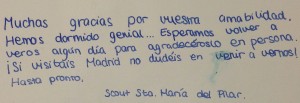 Muchas gracias por vuestra amabilidad.
Hemos dormido genial... Esperamos volver a
veros algún día para agradecéroslo en persona.
¡Si visitáis Madrid no dudéis en venir a vernos!
Hasta pronto,
Scout Sta. María del Pilar.